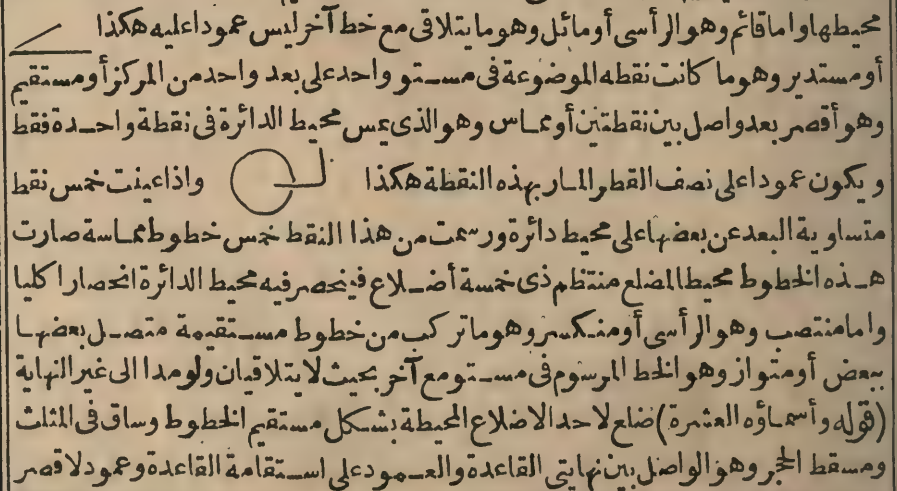 محيطها واما قائم وهو الرأسى أومائل وهو ما يتلاقى مع خط آخر ليس عمودا عليه هكذا
أومستدير وهو ما كانت نقطه الموضوعة فى مستو واحد على بعد واحد من المركز أومستقيم
وهو أقصر بعد واصل بين نقطتين أومماس وهو الذى يمس محيط الدائرة فى نقطة واحدة فقط
ويكون عمودا على نصف القطر المار بهذه النقطة هكذا واذا عينت خمس نقط
متساوية البعد عن بعضها على محيط دائرة ورسمت من هذا النقط خمس خطوط مماسة صارت
هذه الخطوط محيطا لمضلع منتظم ذى خمسة أضلاع فينحصر فيه محيط الدائرة انحصارا كليا
واما منتصب وهو الرأسى أومنكسر وهو ما تركب من خطوط مستقيمة متصل بعضها
ببعض أومتواز وهو الخط المرسوم فى مستو مع آخر بحيث لا يتلاقيان ولو مدا الى غير النهاية
(قوله وأسماؤه العشرة) ضلع لاحد الاضلاع المحيطة بشكل مستقيم الخطوط وساق فى المثلث
ومسقط الحجر وهو الواصل بين نهايتى القاعدة والعمود على استقامة القاعدة وعمود لاقصر